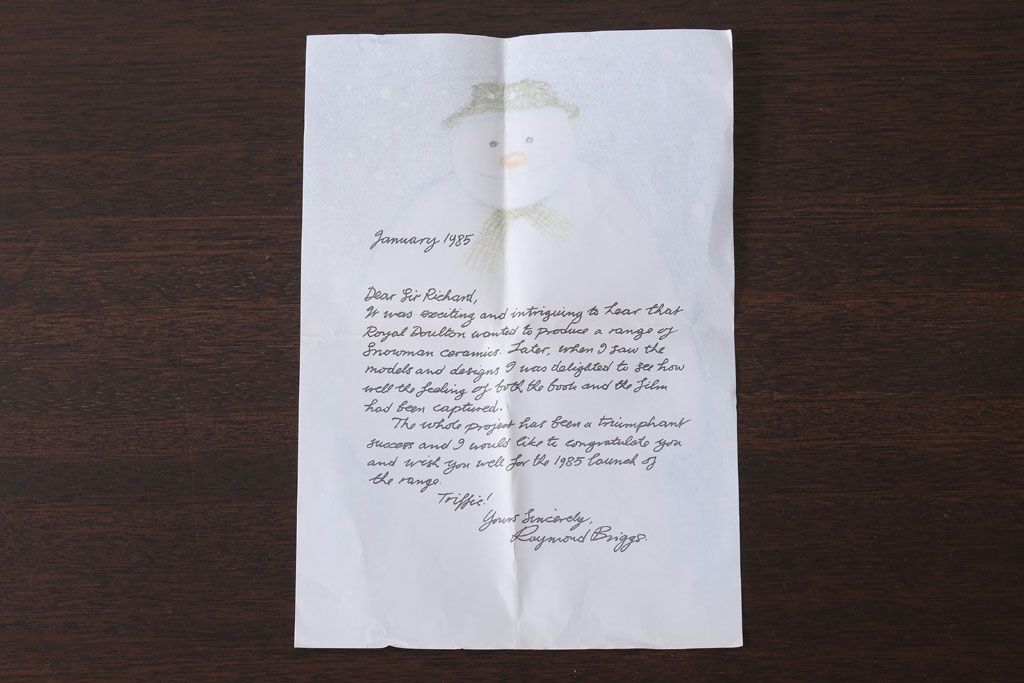 January 1985
Dear Sir Richard,
It was exciting and intriguing to hear that
Royal Doulton wanted to produce a range of
Snowman ceramics. Later, when I saw the
models and designs I was delighted to see how
well the feeling of both the book and the film
had been captured.
The whole project has been a triumphant
success and I would like to congratulate you
and wish you well for the 1985 launch of
the range.
Triffic!
Yours Sincerely,
Raymond Briggs.